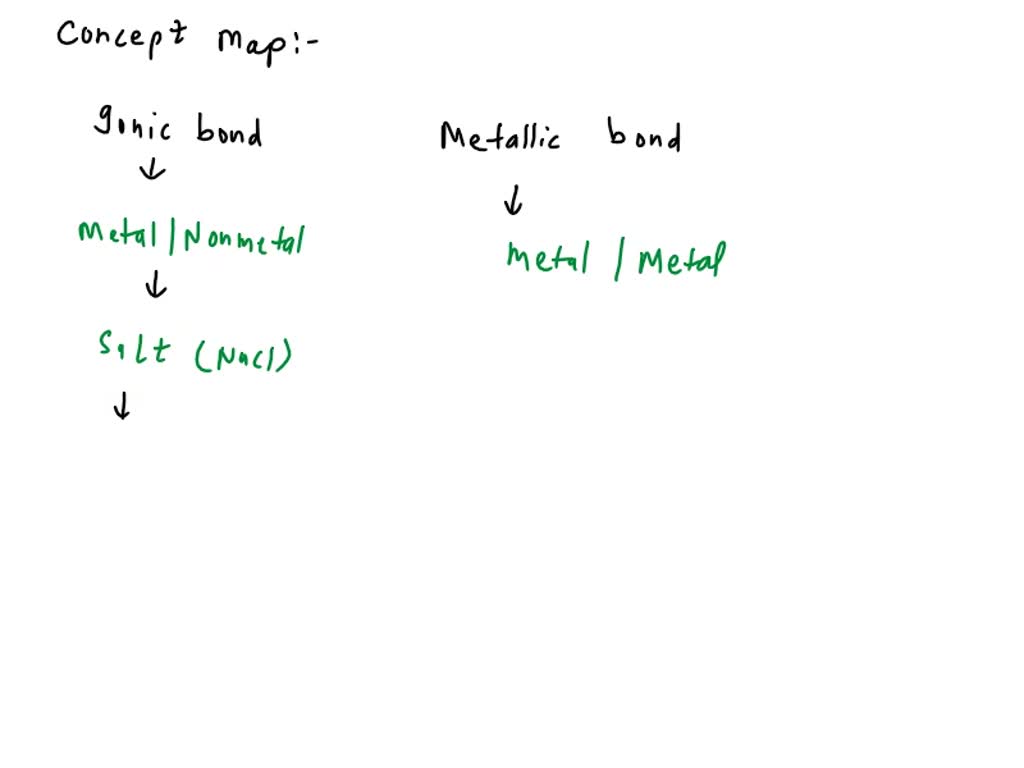 Concept Map:-
Ionic bond
↓
Metal/Nonmetal
↓
Salt (NaCl)
↓
Metallic bond
↓
Metal / Metal